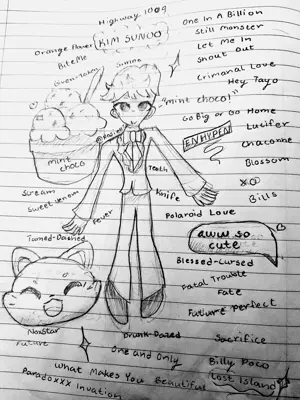 Highway 1009
One In A Billion
KIM SUNOO
Still Monster
Orange Flower
Let Me In
BiteMe
Shout Out
Given-Taken
Sunoo
Criminal Love
Hey Tayo
"mint choco!"
Go Big or Go Home
Lucifer
ENHYPEN
Chaconne
mint
choco
Teeth
Blossom
Scream
XO
Sweet Venom
Knife
Bills
Fever
Polaroid Love
Tamed-Dashed
aww so
cute
Blessed-Cursed
Fatal Trouble
Fate
Future perfect
NoxStar
Future
Drunk-Dazed
Sacrifice
One and Only
Billy Poco
What Makes You Beautiful
Lost Island
ParadoXXX Invation